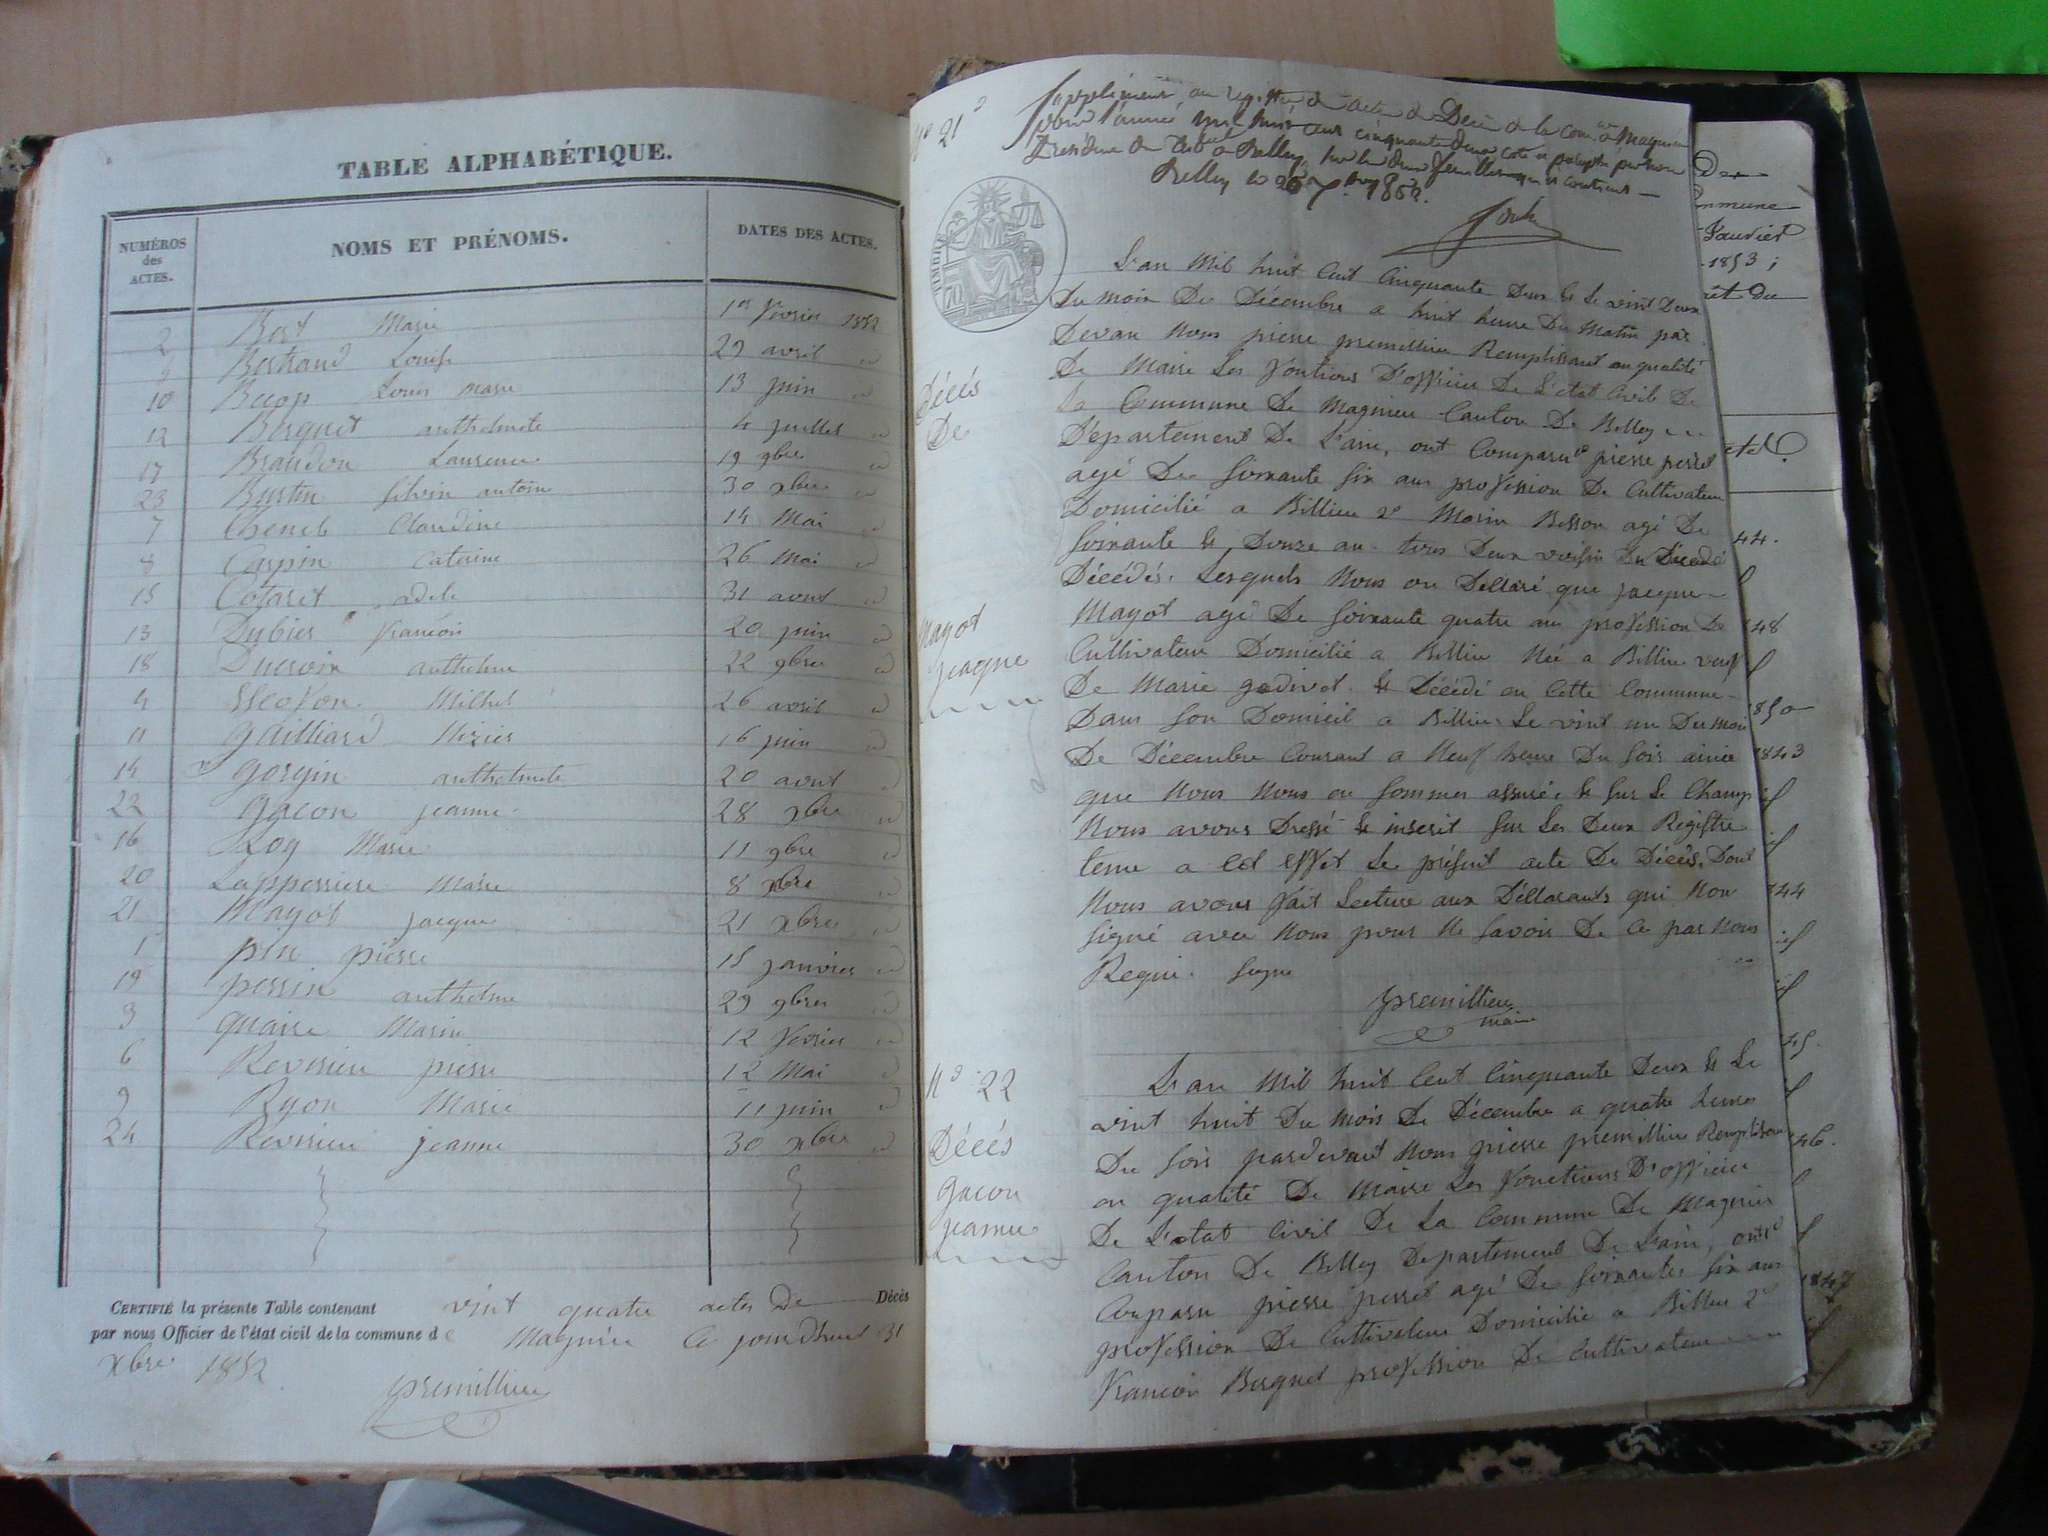 TABLE ALPHABÉTIQUE.
NUMÉROS
des
ACTES.
NOMS ET PRÉNOMS.
DATES DES ACTES.
2 Bert Marie 1er février 1852
Bertrand Louise 29 avril id
10 Louis Marie 13 juin id
12 Berguet anthelmete 4 juillet id
17 Brandon Laurence 19 9bre id
23 Bustin Silvin antoine 30 xbre id
7 Chenel Claudine 14 Mai id
8 Carpin Caterine 26 Mai id
15 Cotaret adele 31 avout id
13 Dubier françois 20 juin id
18 Ducroix anthelme 22 9bre id
4 Michel 26 avril id
11 Gailliard Mizier 16 juin id
14 gorgin anthelmete 20 avout id
22 gacon jeanne 28 xbre id
16 Marie 11 9bre id
20 Lapperriere Marie 8 xbre id
21 Mayot jacque 21 xbre id
1 pin pierre 15 janvier id
19 perrin anthelme 29 9bre id
3 quaire Marin 12 février id
6 Reverieu pierre 12 Mai id
9 Ryon Marie 11 juin id
24 Reverieu jeanne 30 xbre id
CERTIFIÉ la présente Table contenant vint quatre actes De Décès
par nous Officier de l'état civil de la commune de Magnieu Ce jourdhuit 31
xbre 1852
premillieu
No 21
Supplément au registre de actes de Décès de la comne de Magnieu
pour l'année mil huit cent cinquante deux coté et paraphé par nous
Président du Tribal de Belley, sur les deux feuilles qu'il contient
Belley le 26 1852.
TIMBRE
L'an Mil huit Cent Cinquante Deux & Le vint Deux
Du mois De Décembre a huit heure Du Matin par
Devan Nous pierre premillieu Remplissant en qualité
De Maire Les fontions D'officier De L'état Civil De
La Commune De Magnieu Canton De Belley
Département De L'ain, ont Comparu 1° pierre perret
agé De soixante six ans profession De Cultivateur
Domicilié a Billieu 2° Marin Besson agé De
soixante & Douze an tous Deux voisin Du Décédé
Décédés. Lesquels Nous on Déllaré que jacque
Mayot agé De soixante quatre an profession De
Cultivateur Domicilié a Billieu Né a Billieu veuf
De Marie godivet & Décédé en Cette Commune
Dans son Domicil a Billieu Le vint un Du Mois
De Décembre Courant a Neuf heure Du soir ainsie
que Nous Nous en sommes assuré & sur Le Champ
Nous avons Dressé & inscrit sur Les Deux Registre
tenu a Cet effet Le présent acte De Décès. Dont
Nous avons fait Lecture aux Déllarants qui Non
signé avec Nous pour Ne savoir De Ce par Nous
Requi. signe
premillieu
maire
Décés
De
Mayot
jacque
No 22
Décés
gacon
jeanne
L'an Mil huit Cent Cinquante Deux & Le
vint huit Du mois De Décembre a quatre heures
Du soir pardevant Nous pierre premillieu Remplissant
en qualité De Maire Les fonctions D'officier
De L'etat Civil De La Commune De Magnieu
Canton De Belley Département De L'ain, ont
Comparu pierre perret agé De soixantes six ans
profession De Cultivateur Domicilié a Billieu 2°
françois Berguet profession De Cultivateur
Commune
Janvier
1853 ;
44.
148
1850
1843
id
id
144
id
id
45.
46.
1847
id
id